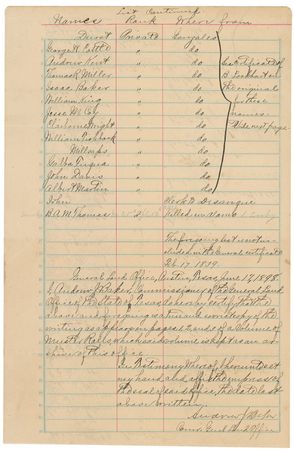 List Continued
Names Rank Where from
Durat Private Gonzales
George W. Cottle " do
Andrew Kent " do
Thomas R. Miller " do
Isaac Baker " do
William King " do
Jesse McCoy " do
Claiborne Wright " do
William Fishback " do
Millsaps " do
Galba Fuqua " do
John Davis " do
Albert Martin " do
See Affidavit of
B. Lockhart on
the original
for these
names
Side next page
John Clerk to Desanque
B. A. M. Thomas Killed in Alamo
The foregoing list not in-
cluded in the General certificate
General Land Office, Austin, Texas, June 17, 1898.
I, Andrew J. Baker, Commissioner of the General Land
Office of the State of Texas do hereby certify that the
above and foregoing is a true and correct copy of the
writing as appears on pages 2 and of a Volume of
Muster Rolls, which said volume is kept as an ar-
chive of this office.
In Testimony Whereof I hereunto set
my hand and affix the impress of
the seal of said office, the date last
above written.
Andrew J. Baker
Comr. Genl. Land Office